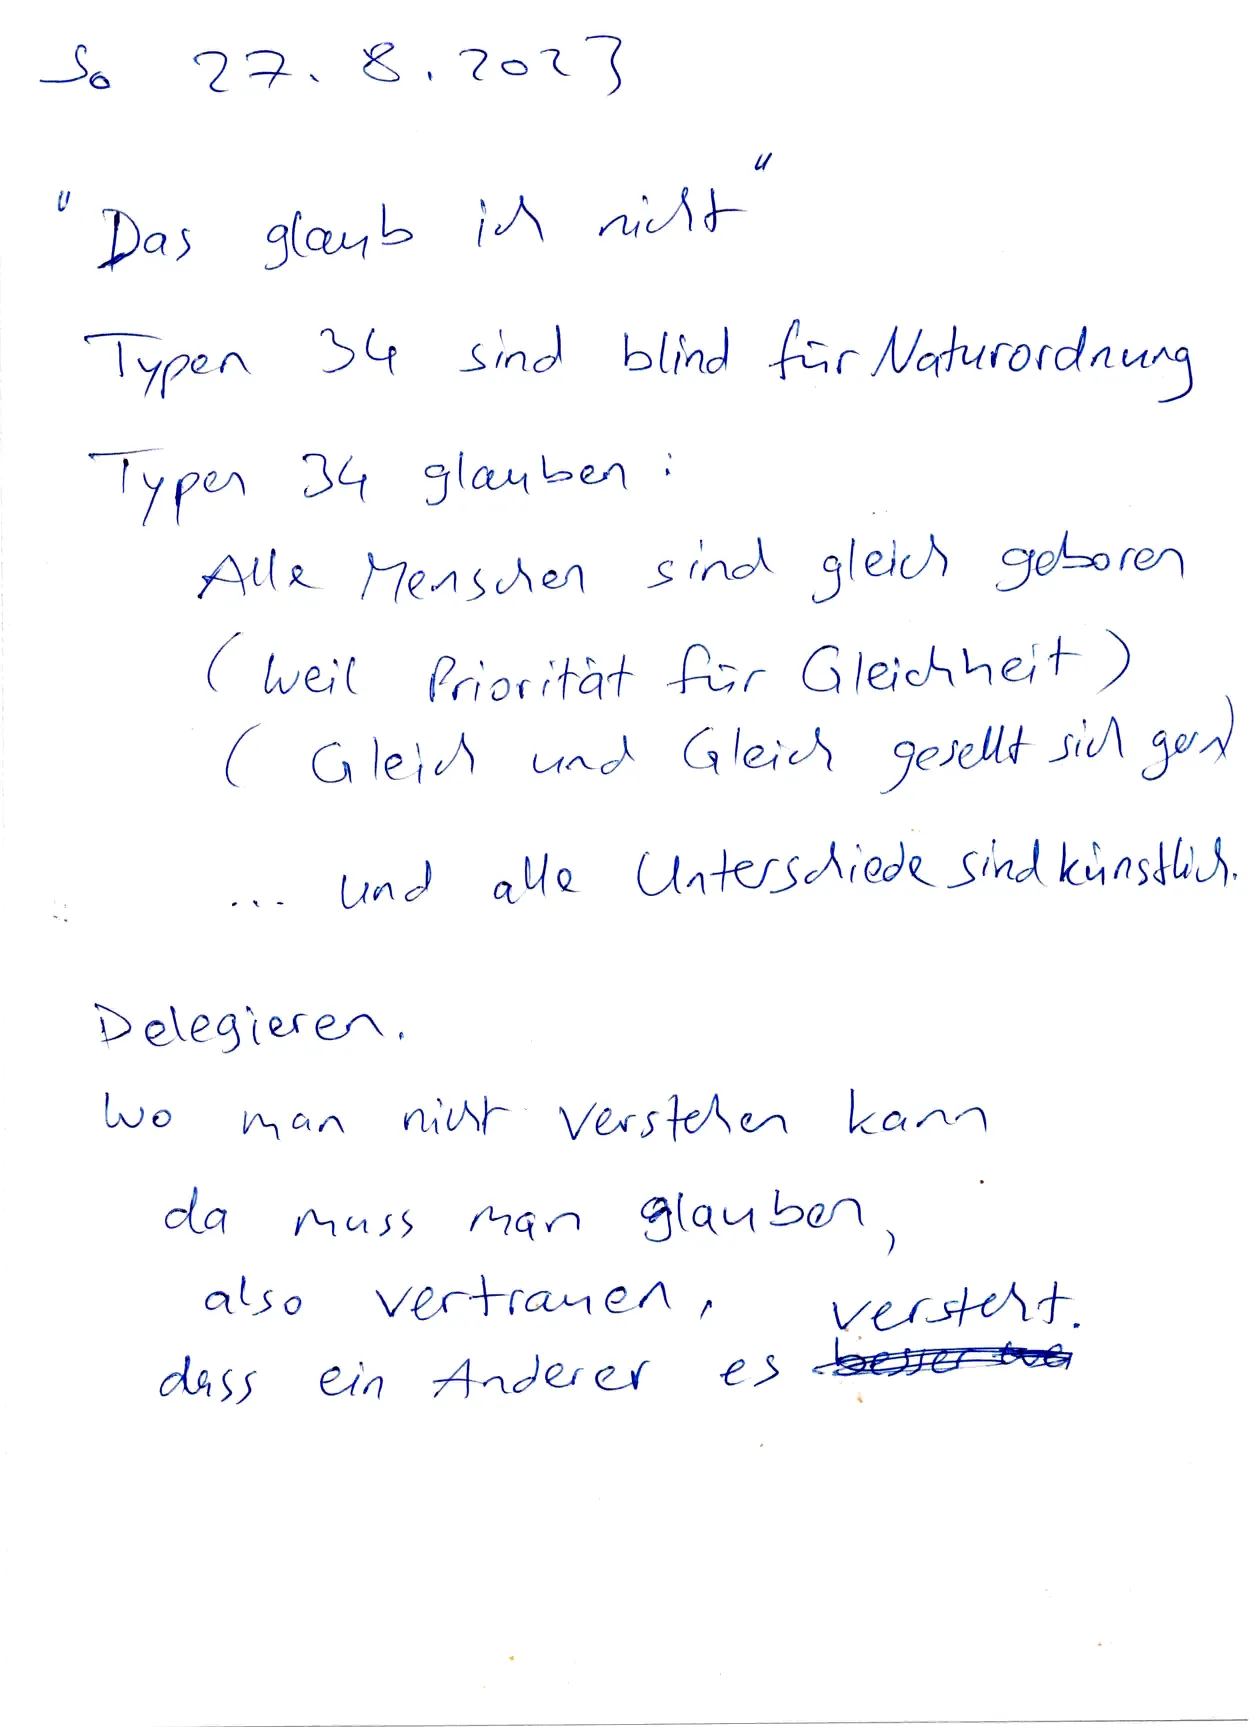 So 27. 8. 2023
"Das glaub ich nicht"
Typen 34 sind blind für Naturordnung
Typen 34 glauben:
Alle Menschen sind gleich geboren
(weil Priorität für Gleichheit)
(Gleich und Gleich gesellt sich gern)
... und alle Unterschiede sind künstlich.
Delegieren.
Wo man nicht verstehen kann
da muss man glauben,
also vertrauen,
dass ein Anderer es versteht.